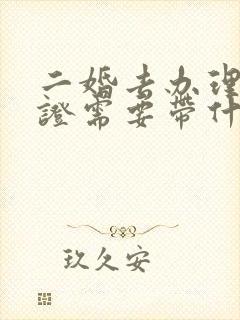 二婚去办理
證需要带什
玖久安